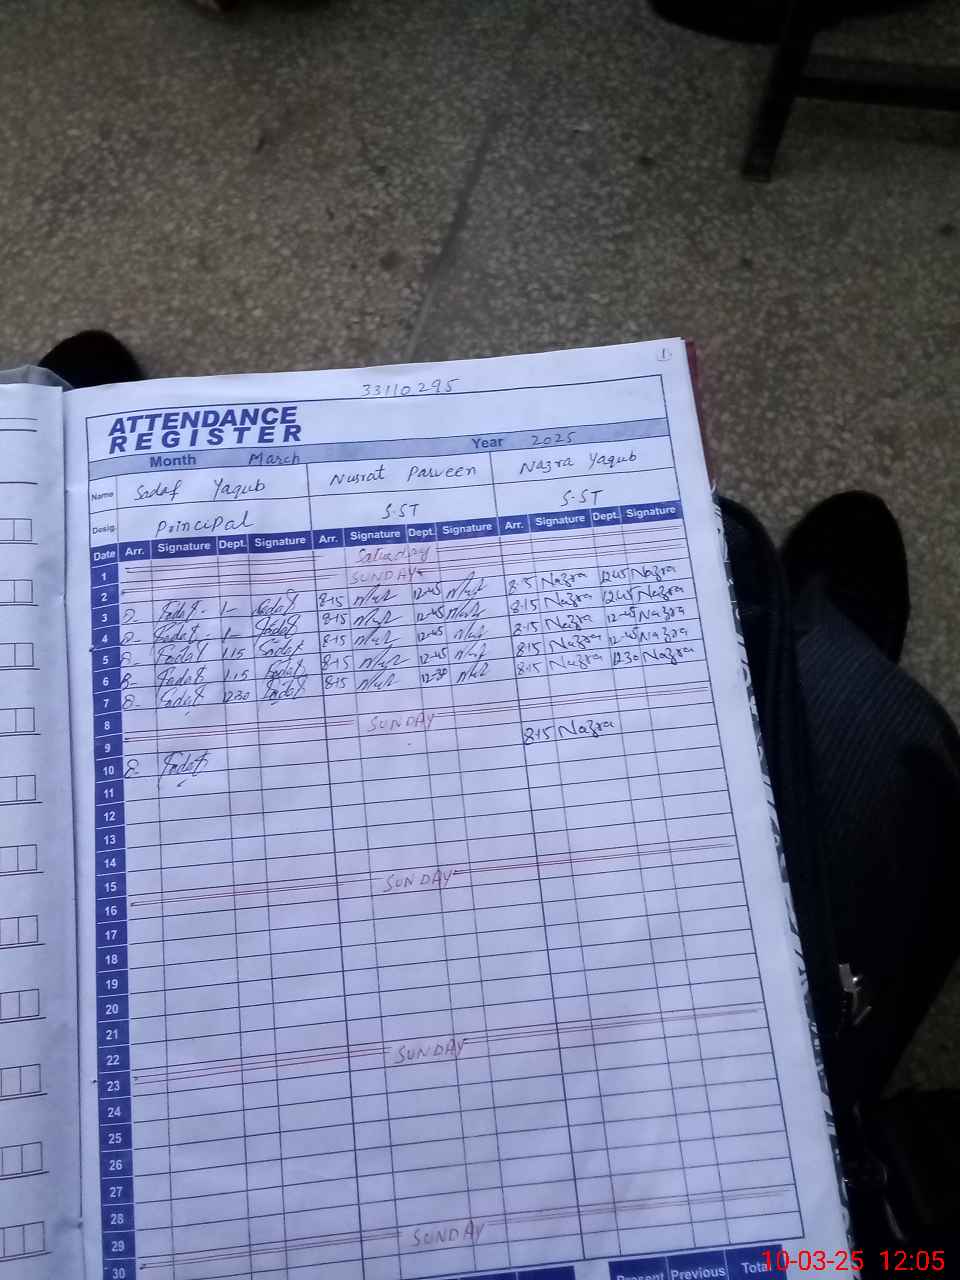 1
33110295
ATTENDANCE
REGISTER
Month March Year 2025
Name Sadaf Yaqub Nusrat Parveen Nazra Yaqub
Desig. Principal S.ST S.ST
Date Arr. Signature Dept. Signature Arr. Signature Dept. Signature Arr. Signature Dept. Signature
1 Saturday
2 SUNDAY
3 8- Sadaf 1- Sadaf 8-15 12-45 8-15 Nazra 12-45 Nazra
4 8- Sadaf 1- Sadaf 8-15 12-45 8-15 Nazra 12-45 Nazra
5 8- Sadaf 1.15 Sadaf 8-15 12-45 8-15 Nazra 12-45 Nazra
6 8- Sadaf 1.15 Sadaf 8-15 12-45 8-15 Nazra 12-45 Nazra
7 8- Sadaf 12:30 Sadaf 8-15 12-30 8-15 Nazra 12:30 Nazra
8
9 SUNDAY
10 8- Sadaf 8-15 Nazra
11
12
13
14
15
16 SUNDAY
17
18
19
20
21
22
23 SUNDAY
24
25
26
27
28
29
30 SUNDAY
Present Previous Total
10-03-25 12:05